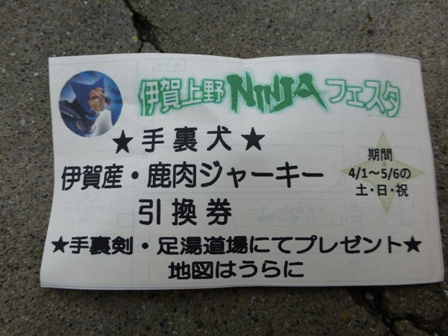 伊賀上野NINJAフェスタ
★手裏犬★
伊賀産・鹿肉ジャーキー
引換券
期間
4/1~5/6の
土・日・祝
★手裏剣・足湯道場にてプレゼント★
地図はうらに